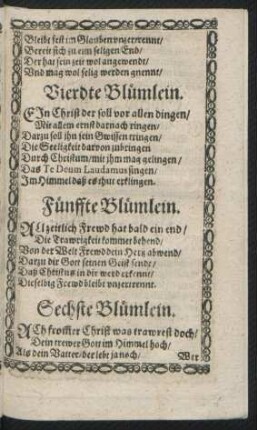 Bleibt fest im Glauben vnzertrennt/
Bereit sich zu eim seligen End/
Der hat sein zeit wol angewendt/
Vnd mag wol selig werden gnennt/
Vierdte Blümlein.
EIn Christ der soll vor allen dingen/
Mit allem ernst darnach ringen/
Darzu soll jhn sein Gwissen tringen/
Die Seeligkeit darvon zubringen
Durch Christum/mit jhm mag gelingen/
Das Te Deum Laudamus singen/
Im Himmel daß es thut erklingen.
Fünffte Blümlein.
ALl zeitlich Frewd hat bald ein end/
Die Trawrigkeit kommet behend/
Von der Welt Frewd dein Hertz abwend/
Darzu dir Gott seinen Geist sendt/
Daß Christus in dir werd erkennt/
Dieselbig Frewd bleibt vnzertrennt.
Sechste Blümlein.
ACh frommer Christ was trawrest doch/
Dein trewer Gott im Himmel hoch/
Als dein Vatter/der lebt ja noch/
Wer